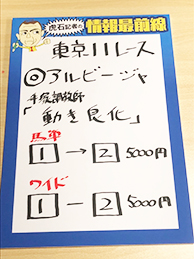 虎石記者の
情報最前線
東京11レース
◎アルビージャ
手塚調教師
「動き良化」
馬単
1→2 5000円
ワイド
1-2 5000円